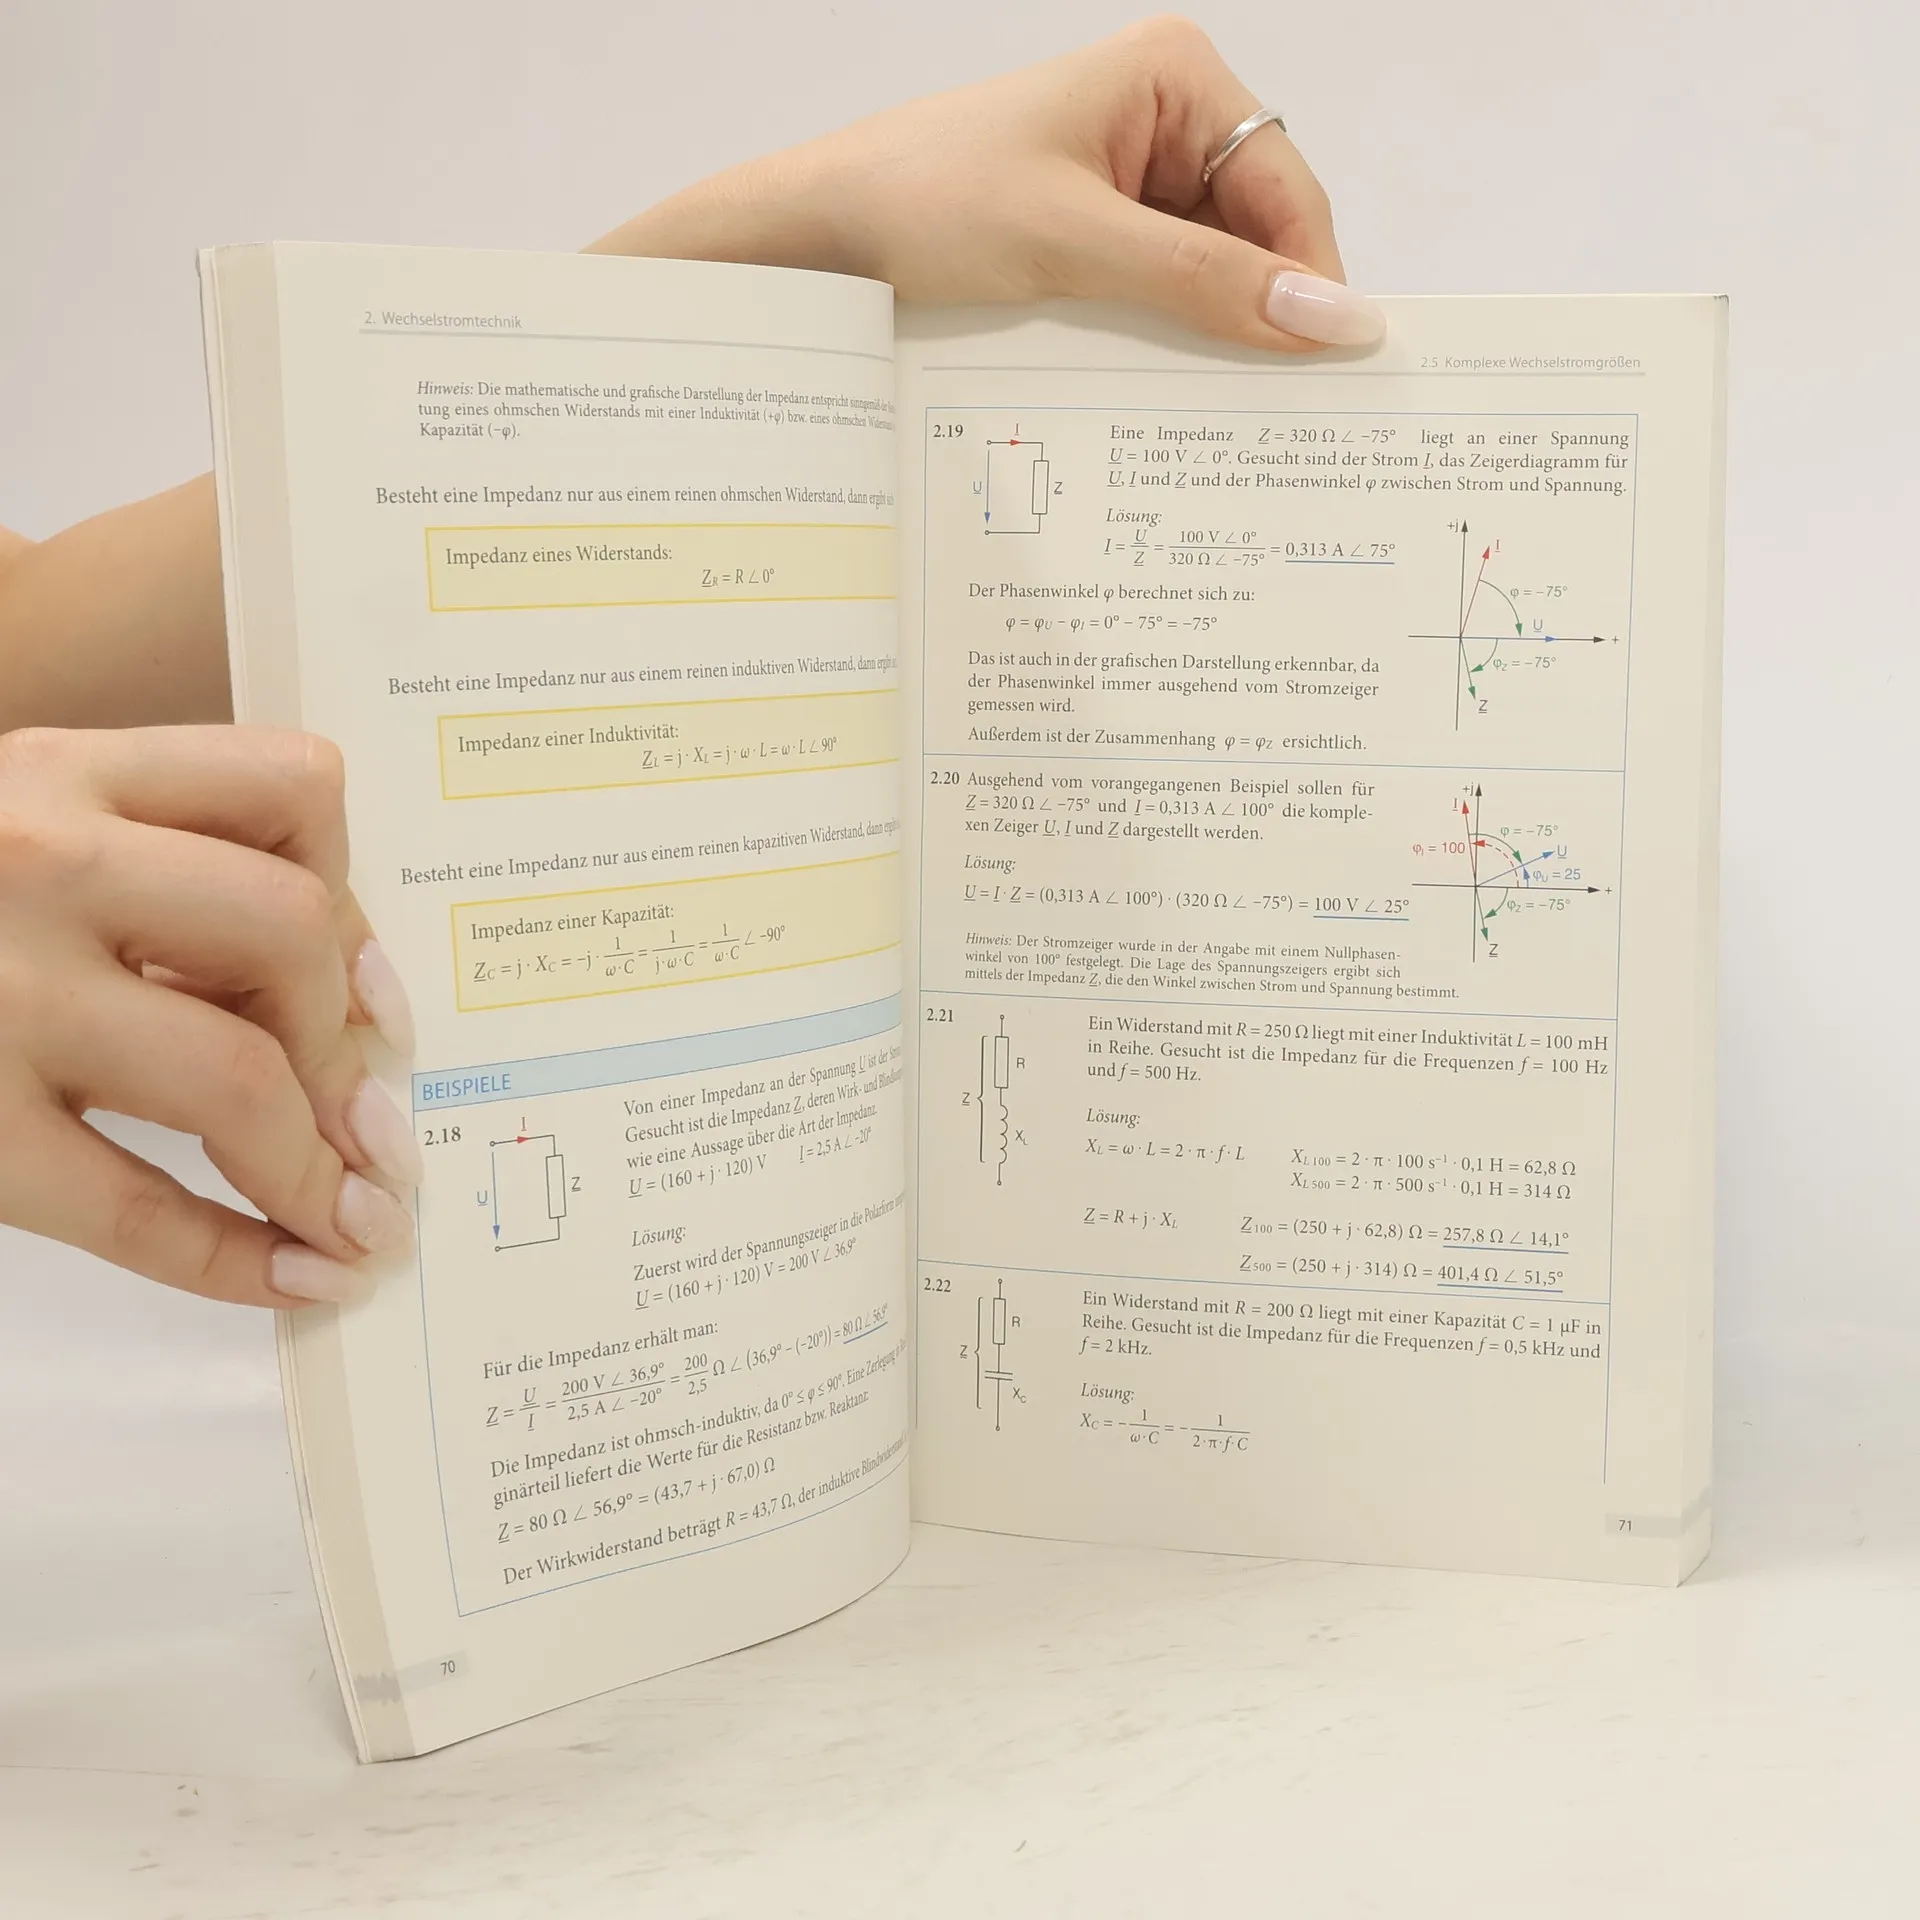 2. Wechselstromtechnik
Hinweis: Die mathematische und grafische Darstellung der Impedanz entspricht sinngemäß der
tung eines ohmschen Widerstands mit einer Induktivität (+φ) bzw. eines ohmschen
Kapazität (−φ).
Besteht eine Impedanz nur aus einem reinen ohmschen Widerstand, dann ergibt sich
Impedanz eines Widerstands:
Z_R = R ∠ 0°
Besteht eine Impedanz nur aus einem reinen induktiven Widerstand, dann ergibt
Impedanz einer Induktivität:
Z_L = j · X_L = j · ω · L = ω · L ∠ 90°
Besteht eine Impedanz nur aus einem reinen kapazitiven Widerstand, dann ergibt
Impedanz einer Kapazität:
Z_C = j · X_C = −j · 1/(ω·C) = 1/(j·ω·C) = 1/(ω·C) ∠ −90°
BEISPIELE
2.18
I
U
Z
Von einer Impedanz an der Spannung U ist der
Gesucht ist die Impedanz Z, deren Wirk- und
wie eine Aussage über die Art der Impedanz.
U = (160 + j · 120) V I = 2,5 A ∠ −20°
Lösung:
Zuerst wird der Spannungszeiger in die Polarform
U = (160 + j · 120) V = 200 V ∠ 36,9°
Für die Impedanz erhält man:
Z = U/I = (200 V ∠ 36,9°)/(2,5 A ∠ −20°) = 200/2,5 Ω ∠ (36,9° − (−20°)) = 80 Ω ∠ 56,9°
Die Impedanz ist ohmsch-induktiv, da 0° ≤ φ ≤ 90°. Eine Zerlegung
ginärteil liefert die Werte für die Resistanz bzw. Reaktanz:
Z = 80 Ω ∠ 56,9° = (43,7 + j · 67,0) Ω
Der Wirkwiderstand beträgt R = 43,7 Ω, der induktive Blindwiderstand
70
2.5 Komplexe Wechselstromgrößen
2.19
I
U
Z
Eine Impedanz Z = 320 Ω ∠ −75° liegt an einer Spannung
U = 100 V ∠ 0°. Gesucht sind der Strom I, das Zeigerdiagramm für
U, I und Z und der Phasenwinkel φ zwischen Strom und Spannung.
Lösung:
I = U/Z = (100 V ∠ 0°)/(320 Ω ∠ −75°) = 0,313 A ∠ 75°
Der Phasenwinkel φ berechnet sich zu:
φ = φ_U − φ_I = 0° − 75° = −75°
Das ist auch in der grafischen Darstellung erkennbar, da
der Phasenwinkel immer ausgehend vom Stromzeiger
gemessen wird.
Außerdem ist der Zusammenhang φ = φ_Z ersichtlich.
+j
I
φ = −75°
U
+
φ_Z = −75°
Z
2.20 Ausgehend vom vorangegangenen Beispiel sollen für
Z = 320 Ω ∠ −75° und I = 0,313 A ∠ 100° die komple-
xen Zeiger U, I und Z dargestellt werden.
Lösung:
U = I · Z = (0,313 A ∠ 100°) · (320 Ω ∠ −75°) = 100 V ∠ 25°
Hinweis: Der Stromzeiger wurde in der Angabe mit einem Nullphasen-
winkel von 100° festgelegt. Die Lage des Spannungszeigers ergibt sich
mittels der Impedanz Z, die den Winkel zwischen Strom und Spannung bestimmt.
+j
I
φ = −75°
φ_I = 100
U
φ_U = 25
+
φ_Z = −75°
Z
2.21
R
Z
X_L
Ein Widerstand mit R = 250 Ω liegt mit einer Induktivität L = 100 mH
in Reihe. Gesucht ist die Impedanz für die Frequenzen f = 100 Hz
und f = 500 Hz.
Lösung:
X_L = ω · L = 2 · π · f · L X_L100 = 2 · π · 100 s⁻¹ · 0,1 H = 62,8 Ω
X_L500 = 2 · π · 500 s⁻¹ · 0,1 H = 314 Ω
Z = R + j · X_L Z_100 = (250 + j · 62,8) Ω = 257,8 Ω ∠ 14,1°
Z_500 = (250 + j · 314) Ω = 401,4 Ω ∠ 51,5°
2.22
R
Z
X_C
Ein Widerstand mit R = 200 Ω liegt mit einer Kapazität C = 1 µF in
Reihe. Gesucht ist die Impedanz für die Frequenzen f = 0,5 kHz und
f = 2 kHz.
Lösung:
X_C = − 1/(ω·C) = − 1/(2·π·f·C)
71